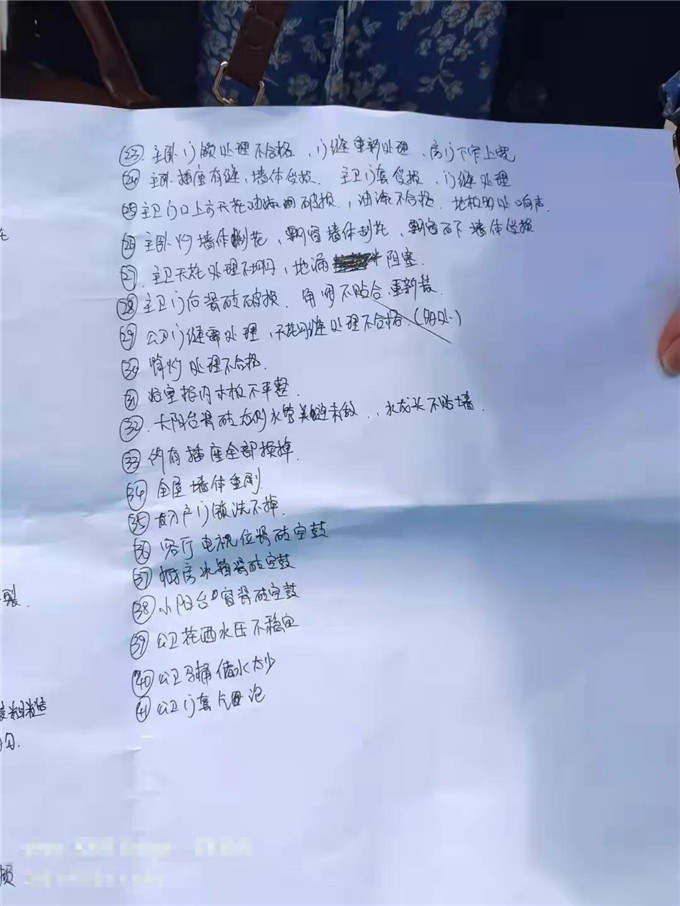 ㉓ 主卧门颏处理不合格,门缝重新处理、房门下窄上宽
㉔ 主卧插座有缝,墙体低损. 主卫门套侵损、门缝处理
㉕ 主卫门口上方天花破损,油漆不合格. 地板多处响声
㉖ 主卧灯墙体刮花,飘窗墙体刮花,飘窗石下墙体侵损
㉗ 主卫天花处理不均匀,地漏 阻塞
㉘ 主卫门后瓷砖破损. 角 不贴合重新装
㉙ 公卫门缝需处理,天花马缝处理不合格.(多处)
㉚ 阵灯处理不合格.
㉛ 柜内木板不平整
㉜ 大阳台瓷砖右 水管美缝未做.,水龙头不贴墙.
㉝ 所有插座全部换掉.
㉞ 全屋墙体重刷
㉟ 入户门 洗不掉.
㊱ 客厅电视位瓷砖空鼓
㊲ 厨房冰箱瓷砖空鼓
㊳ 小阳台 窗瓷砖空鼓
㊴ 公卫花洒水压不稳定
㊵ 公卫马桶储水太少
㊶ 公卫门套气泡
裂.
粗糙
损